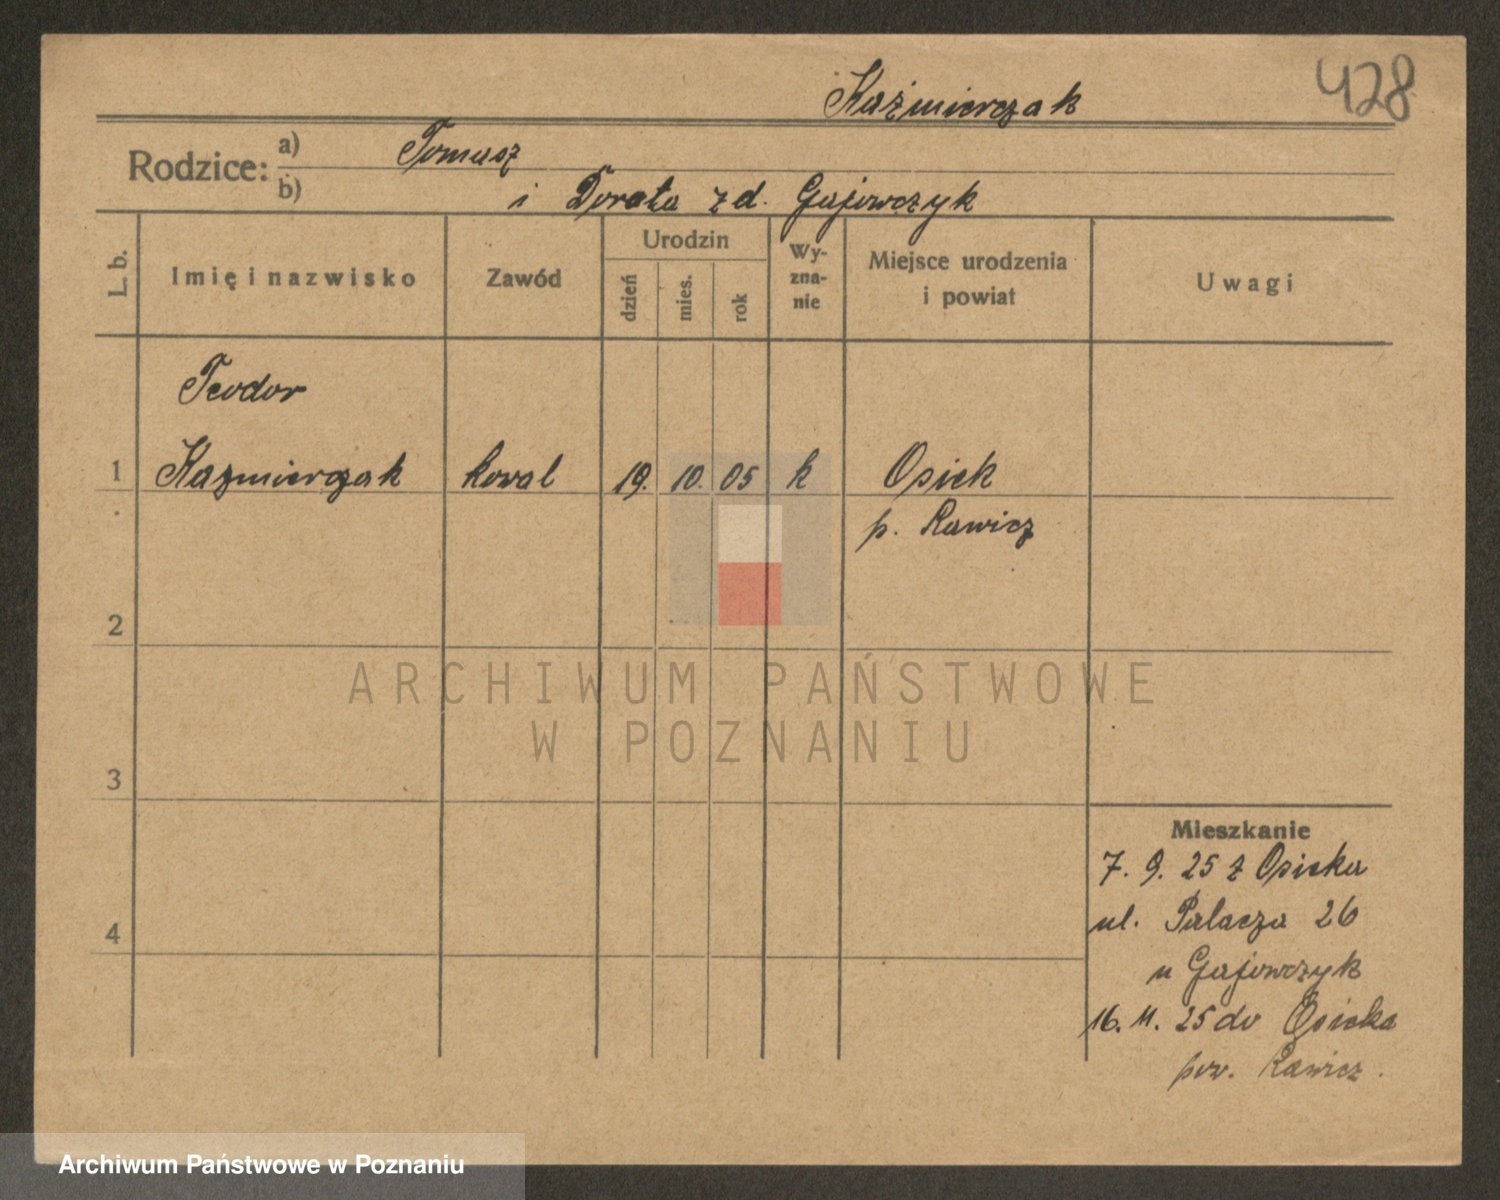 Kaźmierczak
428
Rodzice: a) Tomasz
b) i Dorota zd. Gajowczyk
L. b.
Imię i nazwisko
Zawód
Urodzin
dzień
mies.
rok
Wy-
zna-
nie
Miejsce urodzenia
i powiat
Uwagi
Teodor
1 Kazmierczak kowal 19. 10. 05 k Osiek
p. Rawicz
2
3
4
Mieszkanie
7. 9. 25 z Osieka
ul. Palacza 26
u Gajowczyk
16. 11. 25 do Osieka
pow. Rawicz.
ARCHIWUM PAŃSTWOWE
W POZNANIU
Archiwum Państwowe w Poznaniu